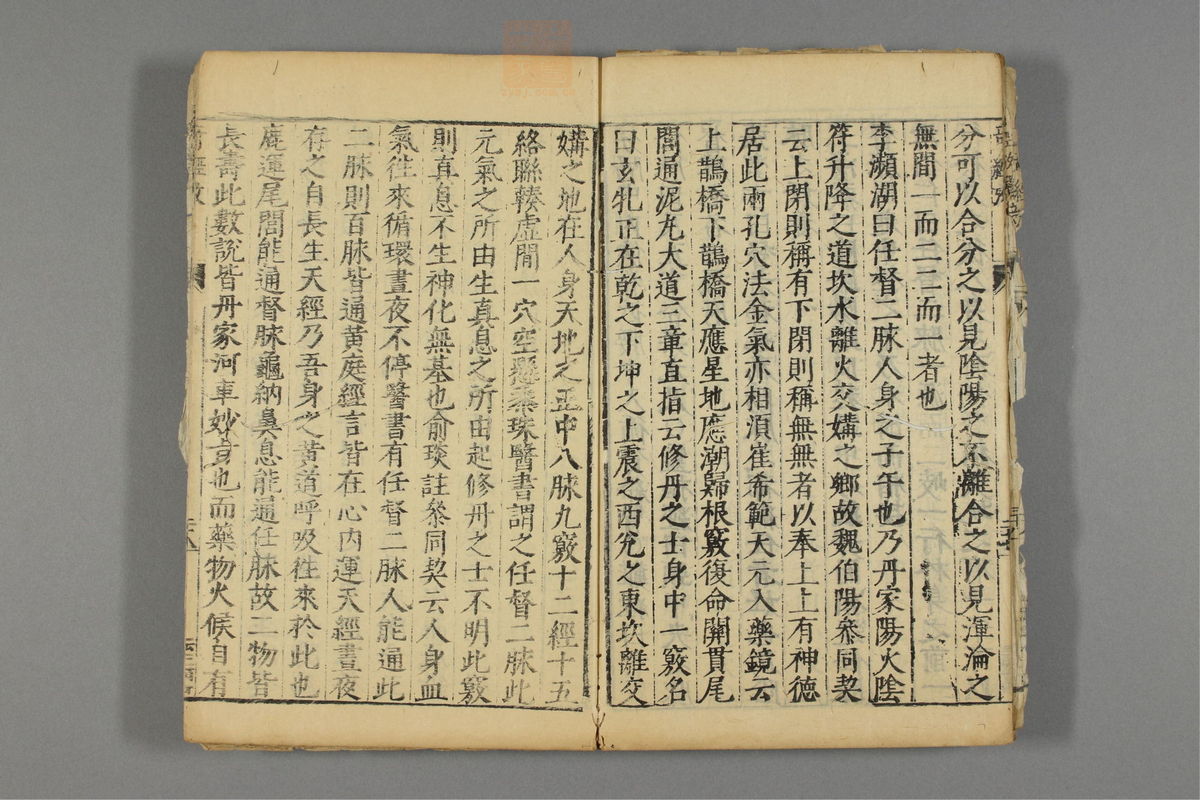 分可以合分之以見陰陽之不離合之以見渾淪之
無間一而二二而一者也
李瀕湖曰任督二脉人身之子午也乃丹家陽火陰
符升降之道坎水離火交媾之鄉故魏伯陽叅同契
云上閉則稱有下閉則稱無無者以奉上上有神德
居此兩孔穴法金氣亦相湏崔希範天元入藥鏡云
上鵲橋下鵲橋天應星地應潮歸根竅復命關貫尾
閭通泥丸大道三章直指云修丹之士身中一竅名
曰玄牝正在乾之下坤之上震之西兊之東坎離交
媾之地在人身天地之正中八脉九竅十二經十五
絡聯輳虛間一穴空懸黍珠醫書謂之任督二脉此
元氣之所由生真息之所由起修丹之士不明此竅
則真息不生神化無基也俞琰註叅同契云人身血
氣徃來循環晝夜不停醫書有任督二脉人能通此
二脉則百脉皆通黃庭經言皆在心內運天經晝夜
存之自長生天經乃吾身之黃道呼吸徃來於此也
鹿運尾閭能通督脉龜納鼻息能通任脉故二物皆
長壽此數說皆丹家河車妙旨也而藥物火候自有